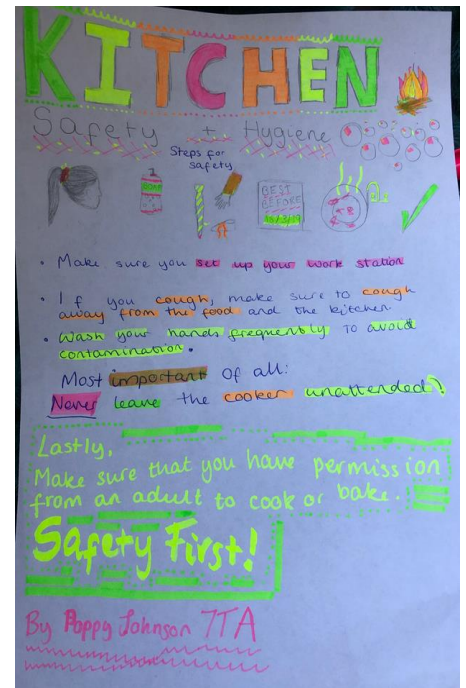 KITCHEN
Safety + Hygiene
Steps for
safety
BEST
BEFORE
• Make sure you set up your work station
• If you cough, make sure to cough
away from the food and the kitchen.
• Wash your hands frequently to avoid
contamination.
Most important of all:
Never leave the cooker unattended!
Lastly,
Make sure that you have permission
from an adult to cook or bake.
Safety First!
By Poppy Johnson 7TA